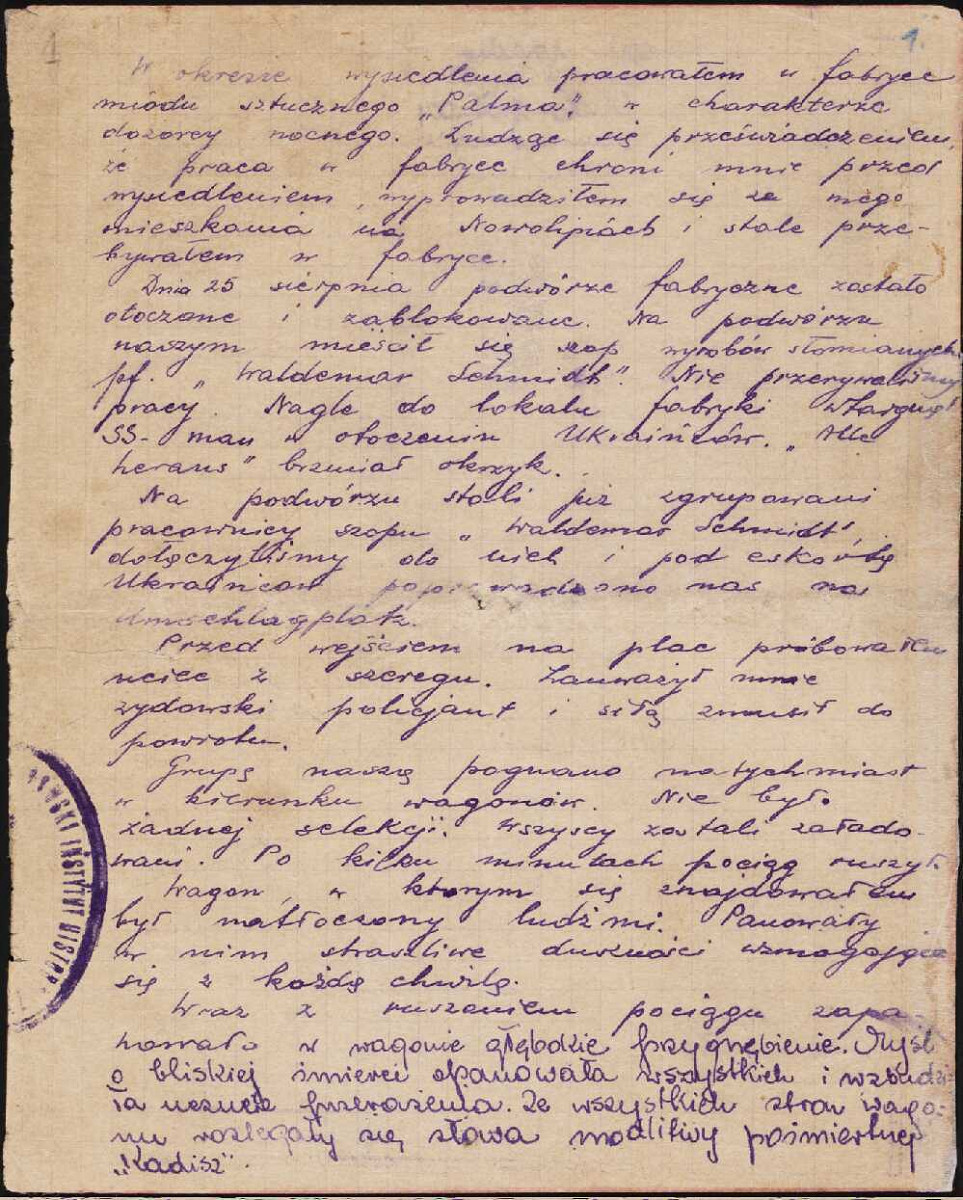 1.
W okresie wysiedlenia pracowałem w fabryce
miodu sztucznego „Palma" w charakterze
dozorcy nocnego. Łudząc się przeświadczeniem,
że praca w fabryce chroni mnie przed
wysiedleniem, wyprowadziłem się ze mego
mieszkania na Nowolipiach i stale prze-
bywałem w fabryce.
Dnia 25 sierpnia podwórze fabryczne zostało
otoczone i zablokowane. Na podwórzu
naszym mieścił się szop wyrobów słomianych
pf. „Waldemar Schmidt". Nie przerywaliśmy
pracy. Nagle do lokalu fabryki wtargnął
SS-man w otoczeniu Ukraińców. „Alle
heraus" brzmiał okrzyk.
Na podwórzu stali już zgrupowani
pracownicy szopu „Waldemar Schmidt",
dołączyliśmy do nich i pod eskortą
Ukraińców poprowadzono nas na
Umschlagplatz.
Przed wejściem na plac próbowałem
uciec z szeregu. Zauważył mnie
żydowski policjant i siłą zmusił do
powrotu.
Grupę naszą pognano natychmiast
w kierunku wagonów. Nie było
żadnej selekcji. Wszyscy zostali załado-
wani. Po kilku minutach pociąg ruszył.
Wagon, w którym się znajdowałem
był natłoczony ludźmi. Panowały
w nim straszliwe duszności wzmagające
się z każdą chwilą.
Wraz z ruszeniem pociągu zapa-
nowało w wagonie głębokie przygnębienie. Myśl
o bliskiej śmierci opanowała wszystkich i wzbudzi-
ła uczucie przerażenia. Ze wszystkich stron wago-
nu rozlegały się słowa modlitwy pośmiertnej
„Kadisz".
OWSKI INSTYTUT HISTOR